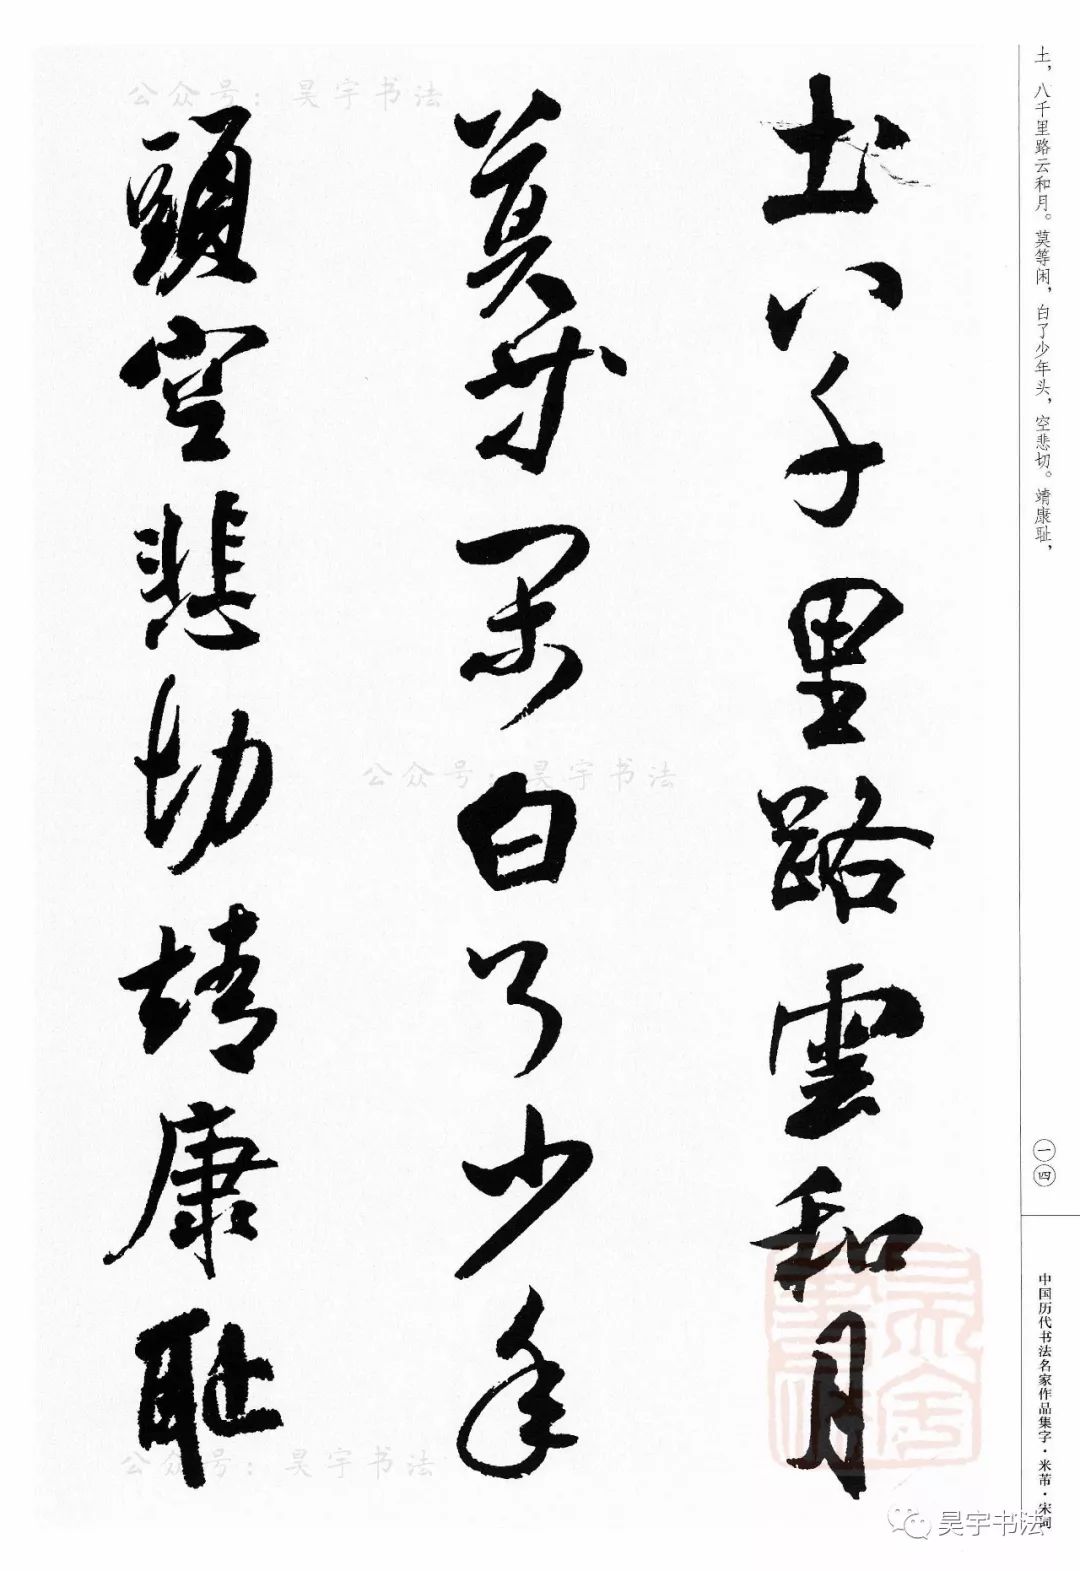 土，八千里路云和月。莫等闲，白了少年头，空悲切。靖康耻，
一四
中国历代书法名家作品集字·米芾·宋词
土八千里路雲和月
莫等闲白了少年
頭空悲切靖康耻
公众号：昊宇书法
公众号：昊宇书法
公众号：昊宇书法
昊宇书法